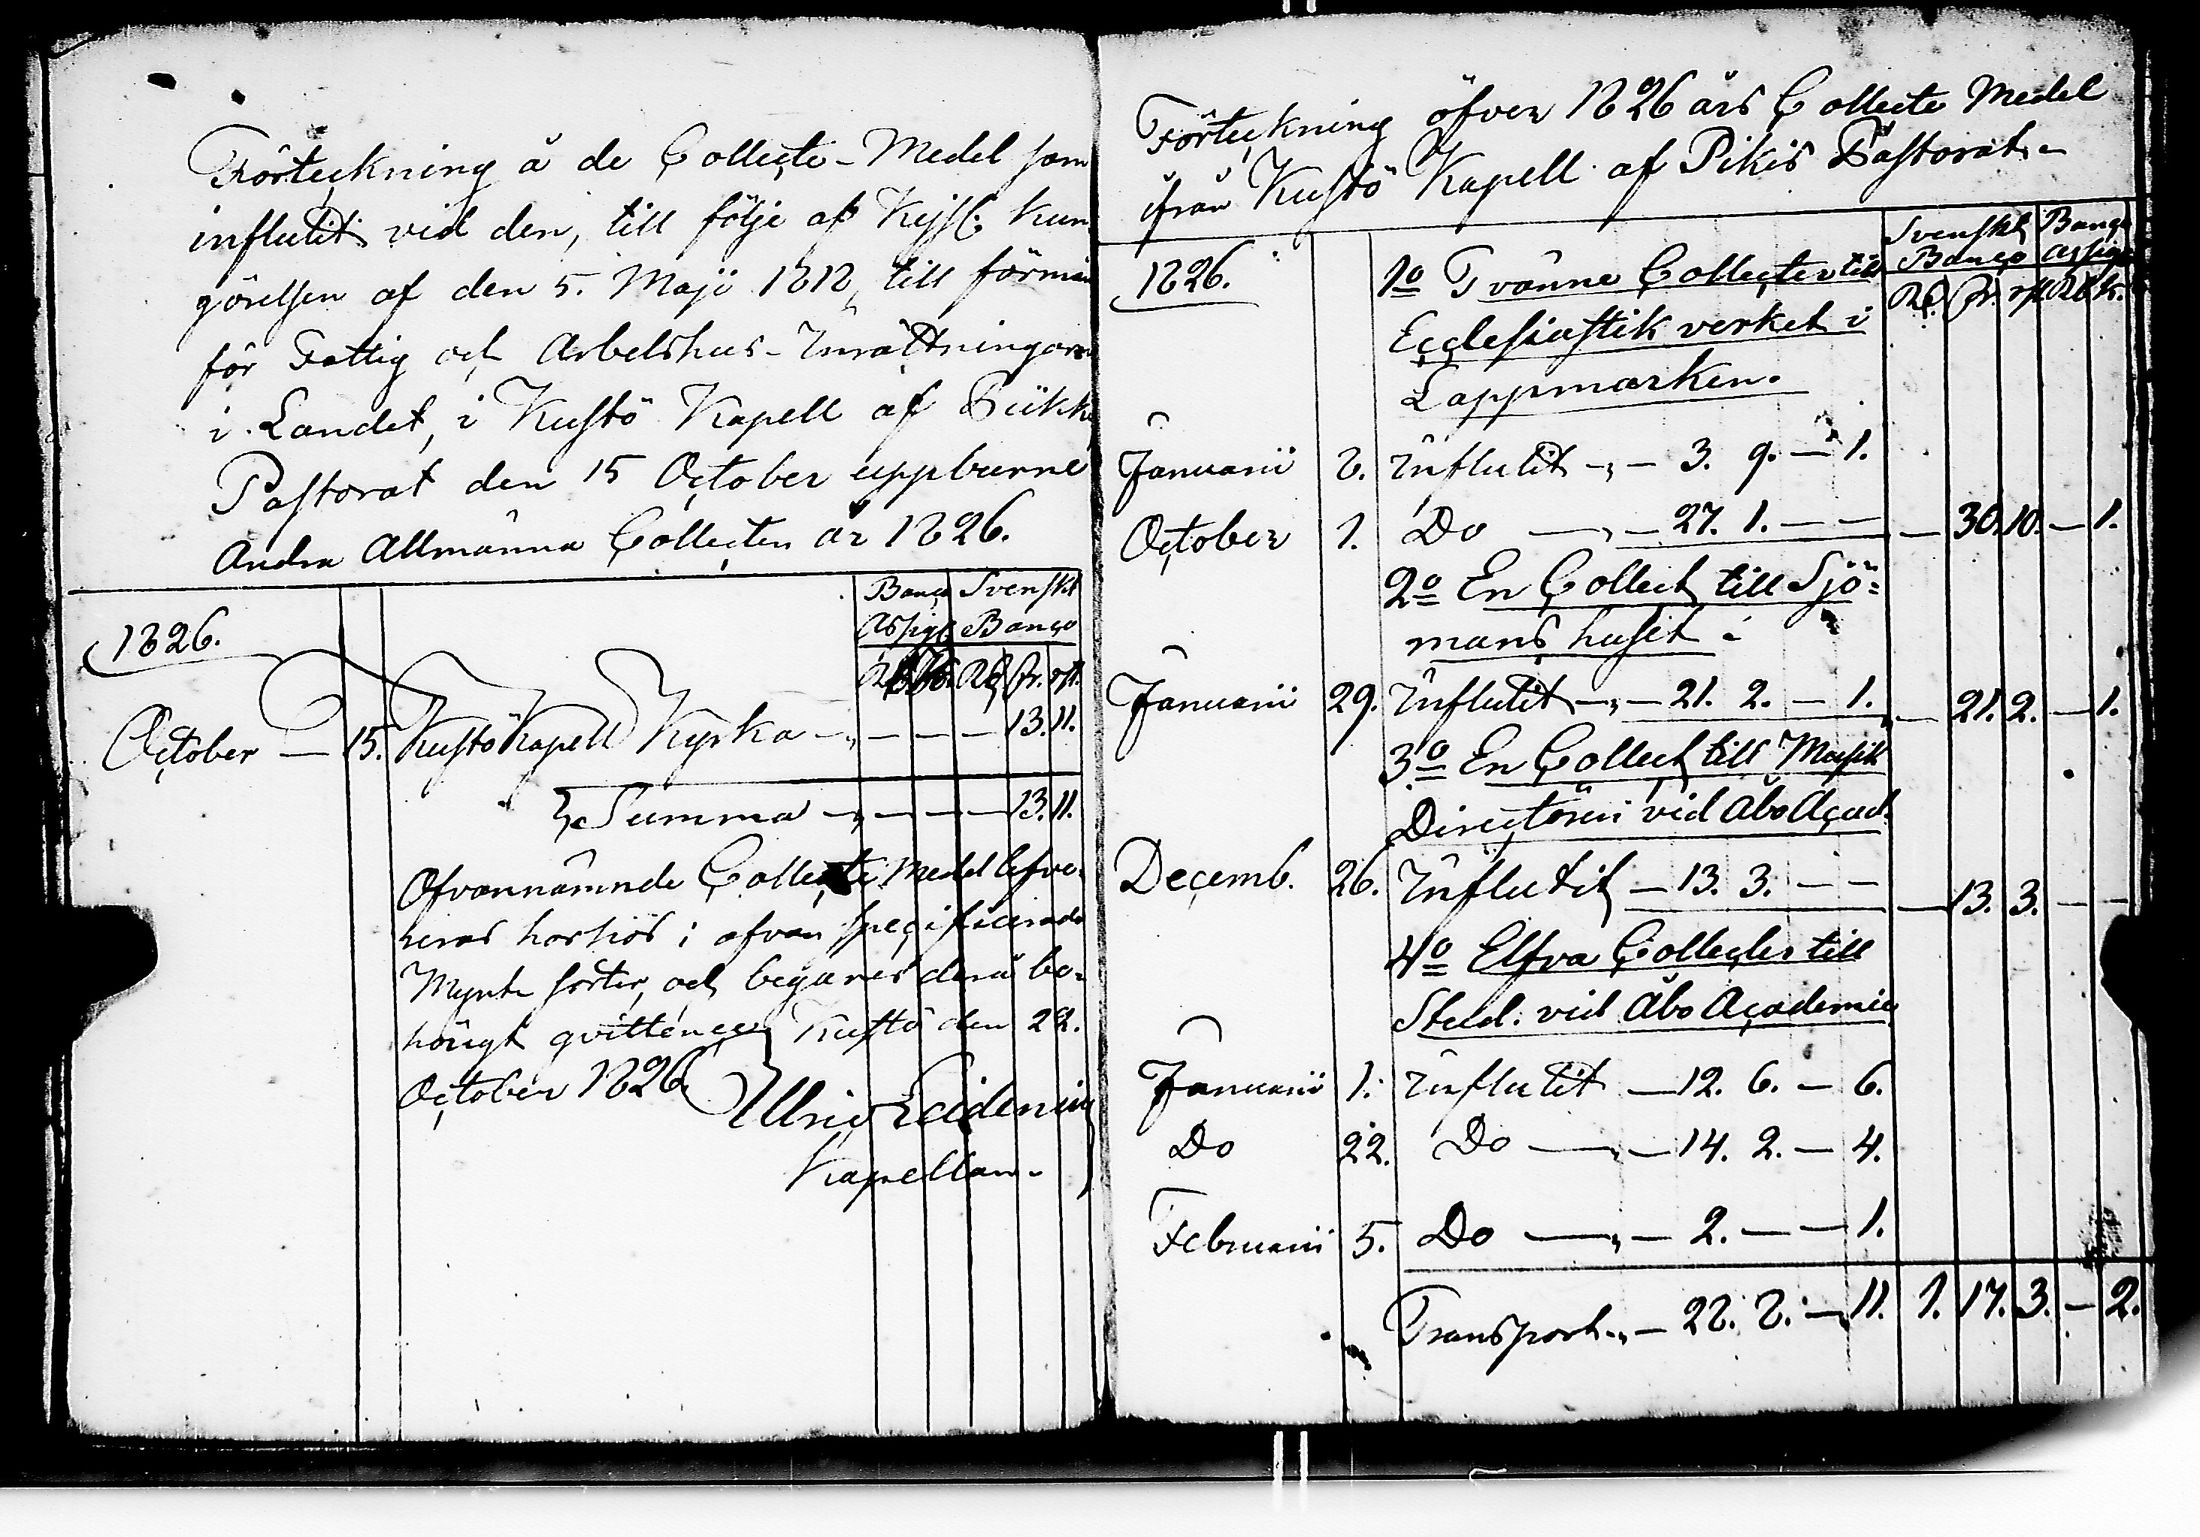 Förteckning å de Collecte-Medel som
influtit vid den, till följe af Kejsl. Kun
görelsen af den 5. Maji 1818, till förmån
för Fattig och Arbetshus-Inrättningarne
i Landet, i Kustö Kapell af Piikkis
Pastorat den 15 October uppburne
Andra Allmänna Collecten år 1826.
Banco Svenskt
Assign. Banco
1826.
Rb. K. Rd. sk. rst.
October — 15. Kustö Kapell Kyrka — — — — 13. 11.
Summa — — — — 13. 11.
Ofvannämnde Collecte Medel lefve-
reras härhos i ofvan specificerade
Mynte sorter, och begäres derå be-
hörigt qvittence, Kustö den 22.
October 1826.
Kapellan.
Förteckning öfver 1826 års Collecte Medel
ifrån Kustö Kapell af Pikis Pastorat.
Svenskt Banco
Banco Assign.
1826.
1o Tvänne Collecter till
Rd. sk. rst. Rb. K.
Ecclesiastik verket i
Lappmarken.
Januarii 8. Influtit — 3. 9. — 1.
October 1. Do — 27. 1. — — — 30. 10. — 1.
2o En Collect till Sjö=
mans huset i
Januarii 29. Influtit — 21. 2. — 1. — 21. 2. — 1.
3o En Collect till Musik
Directoren vid Åbo Acad.
Decemb. 26. Influtit — 13. 3. — — — 13. 3. — —
4o Elfva Collecter till
Stud. vid Åbo Academie
Januarii 1. Influtit — 12. 6. — 6.
Do 22. Do — 14. 2. — 4.
Februarii 5. Do — 2. — — 1.
Transport — 28. 8. — 11. 1. 17. 3. — 2.